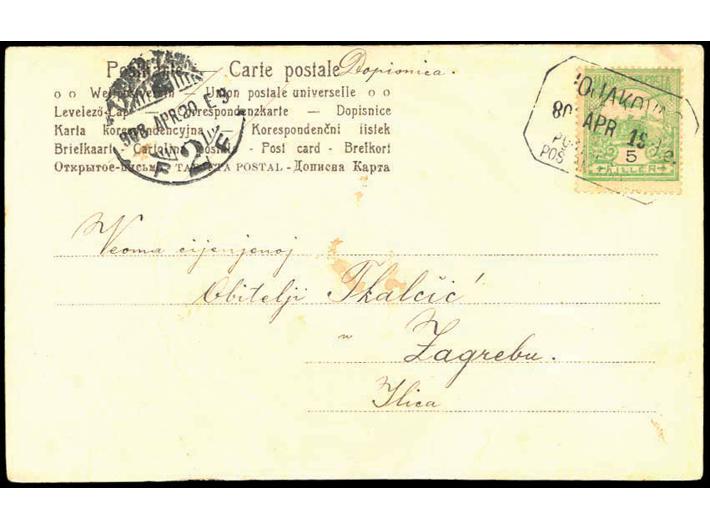 Carte postale Dopisnica.
Union postale universelle
Levelező-Lap — Correspondenzkarte — Dopisnice
Karta korespondencyjna — Korespondenční lístek
Briefkaart - Cartolina postale - Post card - Brefkort
Открытое-письмо TARJETA POSTAL - Дописна Карта
908 APR 20 E 9
2
APR 19
5
FILLER
Veoma cijenjenoj
Obitelji Tkalčić
u
Zagrebu.
Ilica